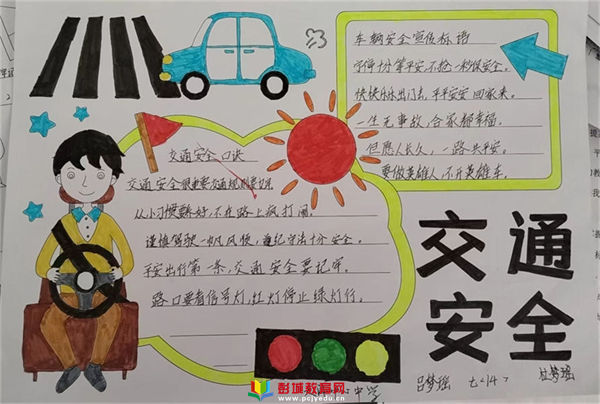 车辆安全宣传标语
宁停十分等平安,不抢一秒保安全。
快快乐乐出门去,平平安安回家来。
一生无事故,合家都幸福。
但愿人长久,一路共平安。
要做英雄人,不开英雄车。
交通安全口诀
交通安全很重要交通规则要记
从小习惯要养好,不在路上疯打闹。
谨慎驾驶一帆风顺,遵纪守法十分安全。
平安出行第一条,交通安全要记牢。
路口要看信号灯,红灯停止绿灯行。
交通
安全
吕梦瑶 七<14>
杜梦瑶
中学
彭城教育网
www.pcjyedu.cn